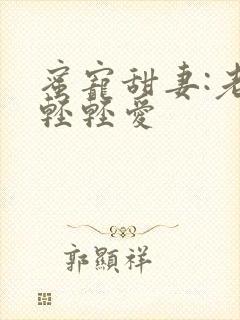 蜜寵甜妻:老
輕輕愛
郭顯祥